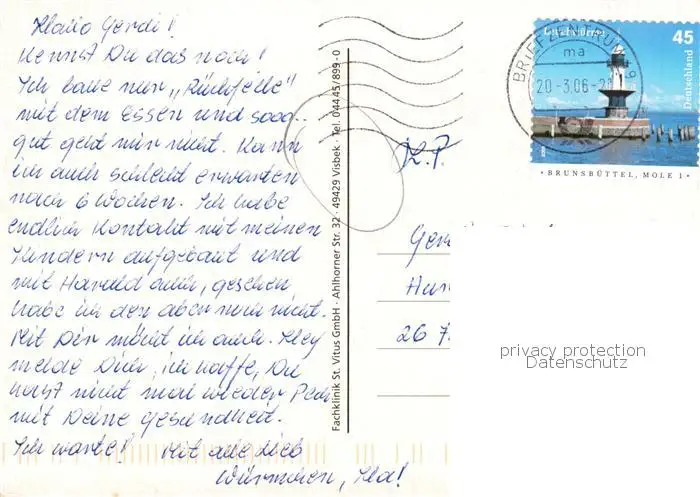 Hallo Gerdi!
Kennst Du das noch!
Ich baue nur „Rückfälle"
mit dem Essen und sooo..
gut geht mir nicht. Kann
ich auch schlecht erwarten
nach 6 Wochen. Ich habe
endlich Kontakt mit meinen
Kindern aufgebaut und
mit Harald auch, gesehen
habe ich den aber noch nicht.
Mit Dir möcht ich auch. Hey
melde Dich, ich hoffe, Du
hast nicht mal wieder Pech
mit Deine Gesundheit.
Ich warte! Mit alle Lieb
Würmchen,
Fachklinik St. Vitus GmbH · Ahlhorner Str. 32 · 49429 Visbek · Tel. 04445/899-0
BRIEFZENTRUM
ma
20.-3.06-2
45
Deutschland
· BRUNSBÜTTEL, MOLE 1 ·
Ger
26 7
privacy protection
Datenschutz